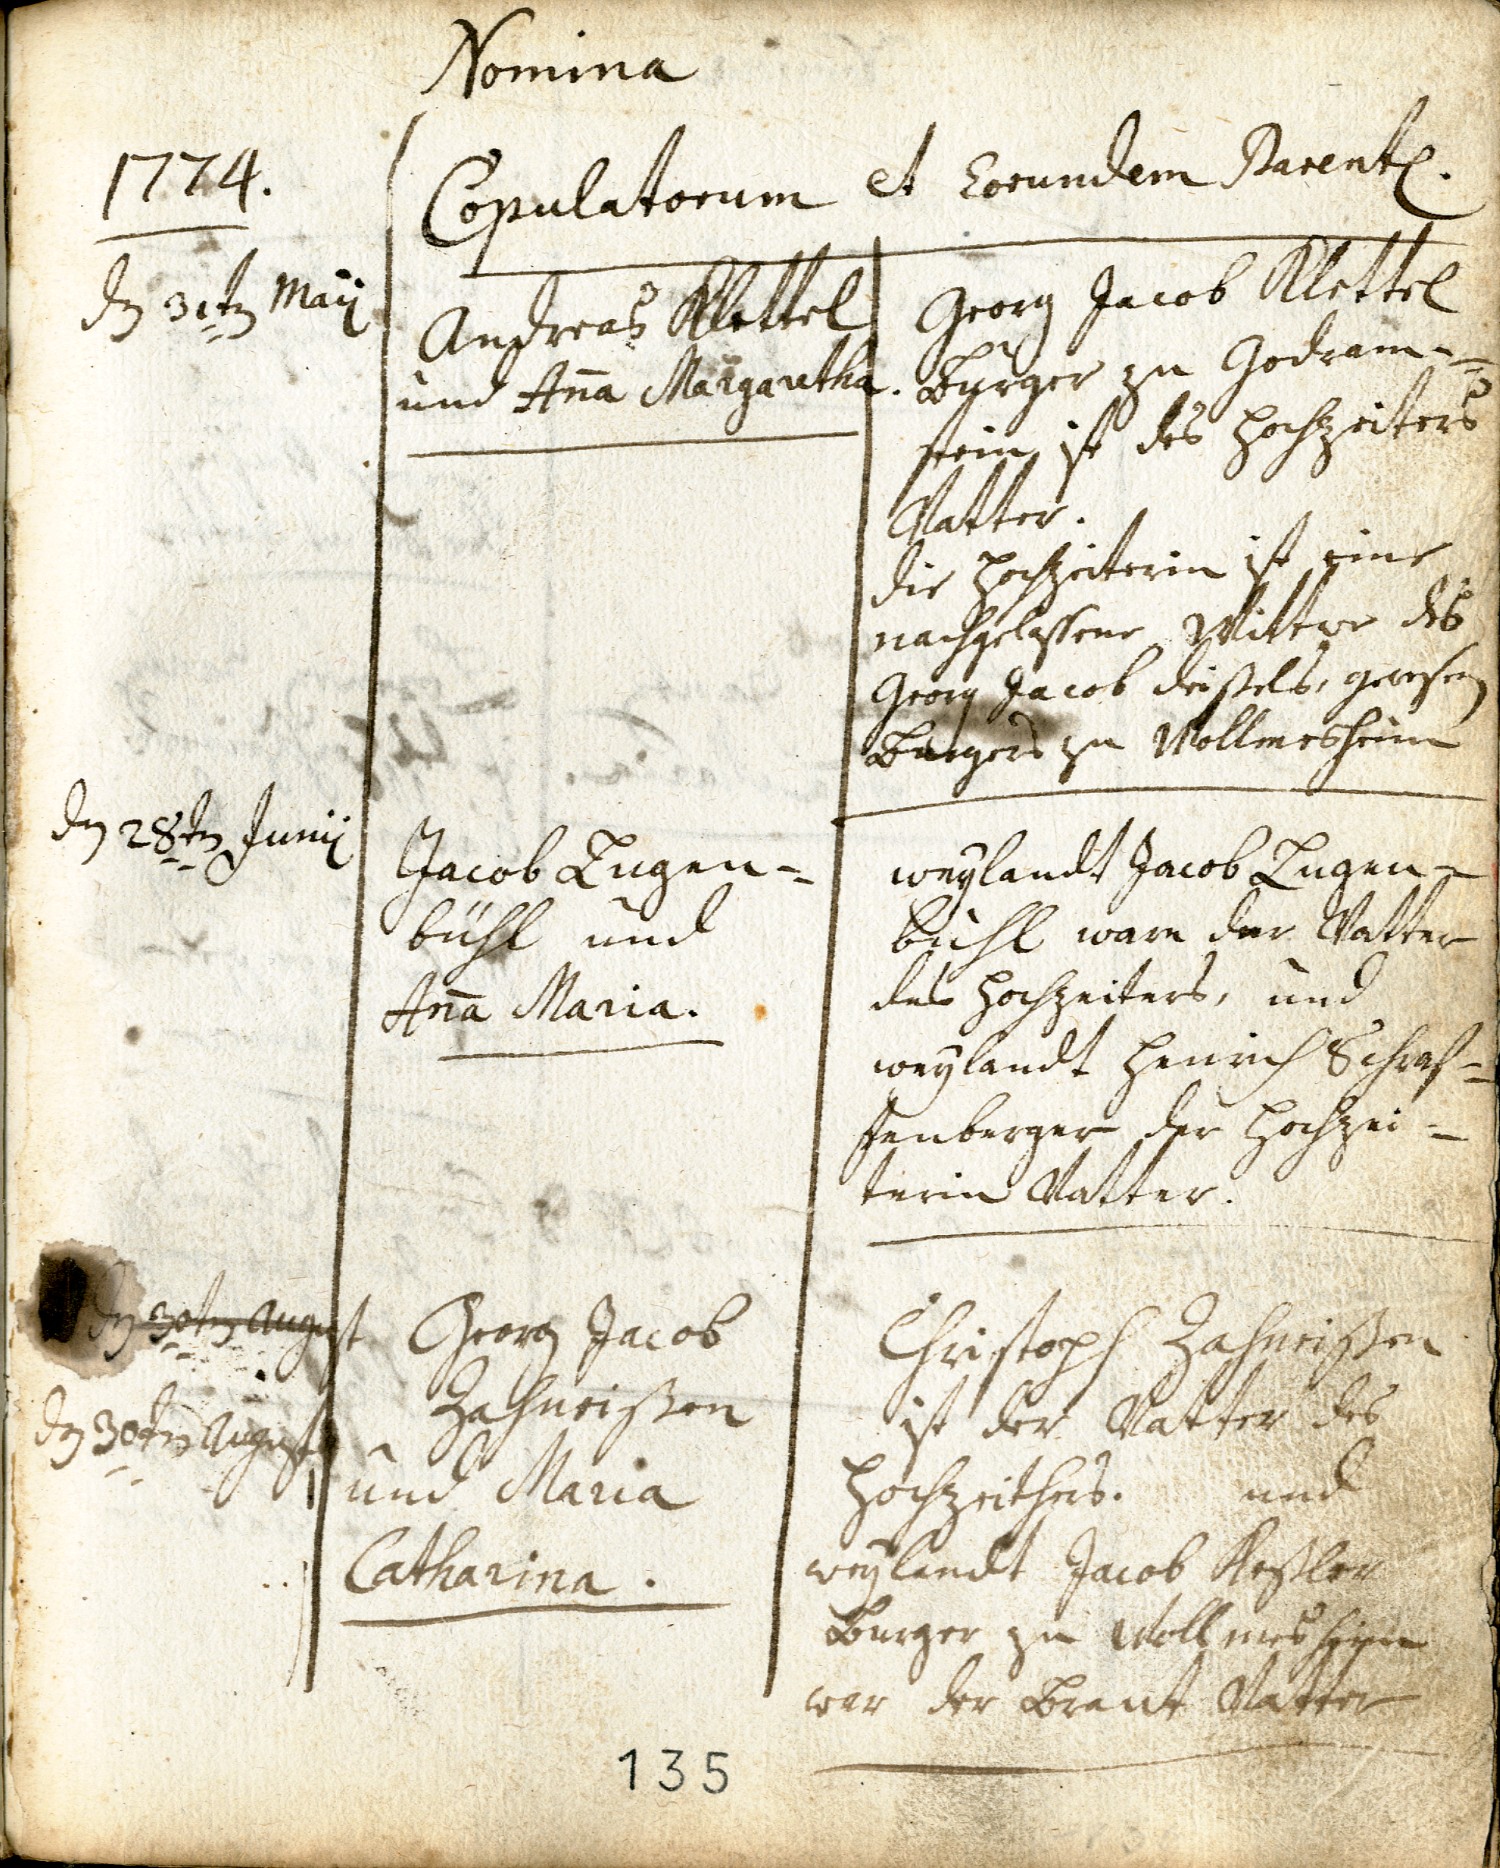 Nomina
1774.
Copulatorum et Eorundem Parent.
dn 31tn Maij
Andreas Klettel
und Aña Margaretha.
Georg Jacob Klettel
Burger zu Godram=
stein ist des Hochzeiters
Vatter.
die Hochzeiterin ist eine
nachgelassene Wittwe des
Georg Jacob gewesen
Burgers zu Wollmesheim
dn 28tn Junij
Jacob Lugen=
bühl und
Aña Maria.
weylandt Jacob Lugen=
bühl ware der Vatter
des Hochzeiters, und
weylandt Henrich Schraf=
fenberger der Hochzei=
terin Vatter.
dn 30tn August
dn 30tn August
Georg Jacob
Zahneißen
und Maria
Catharina.
Christoph Zahneißen
ist der Vatter des
Hochzeithers. und
weylandt Jacob Keßler
Burger zu Wollmesheim
war der Braut Vatter
135